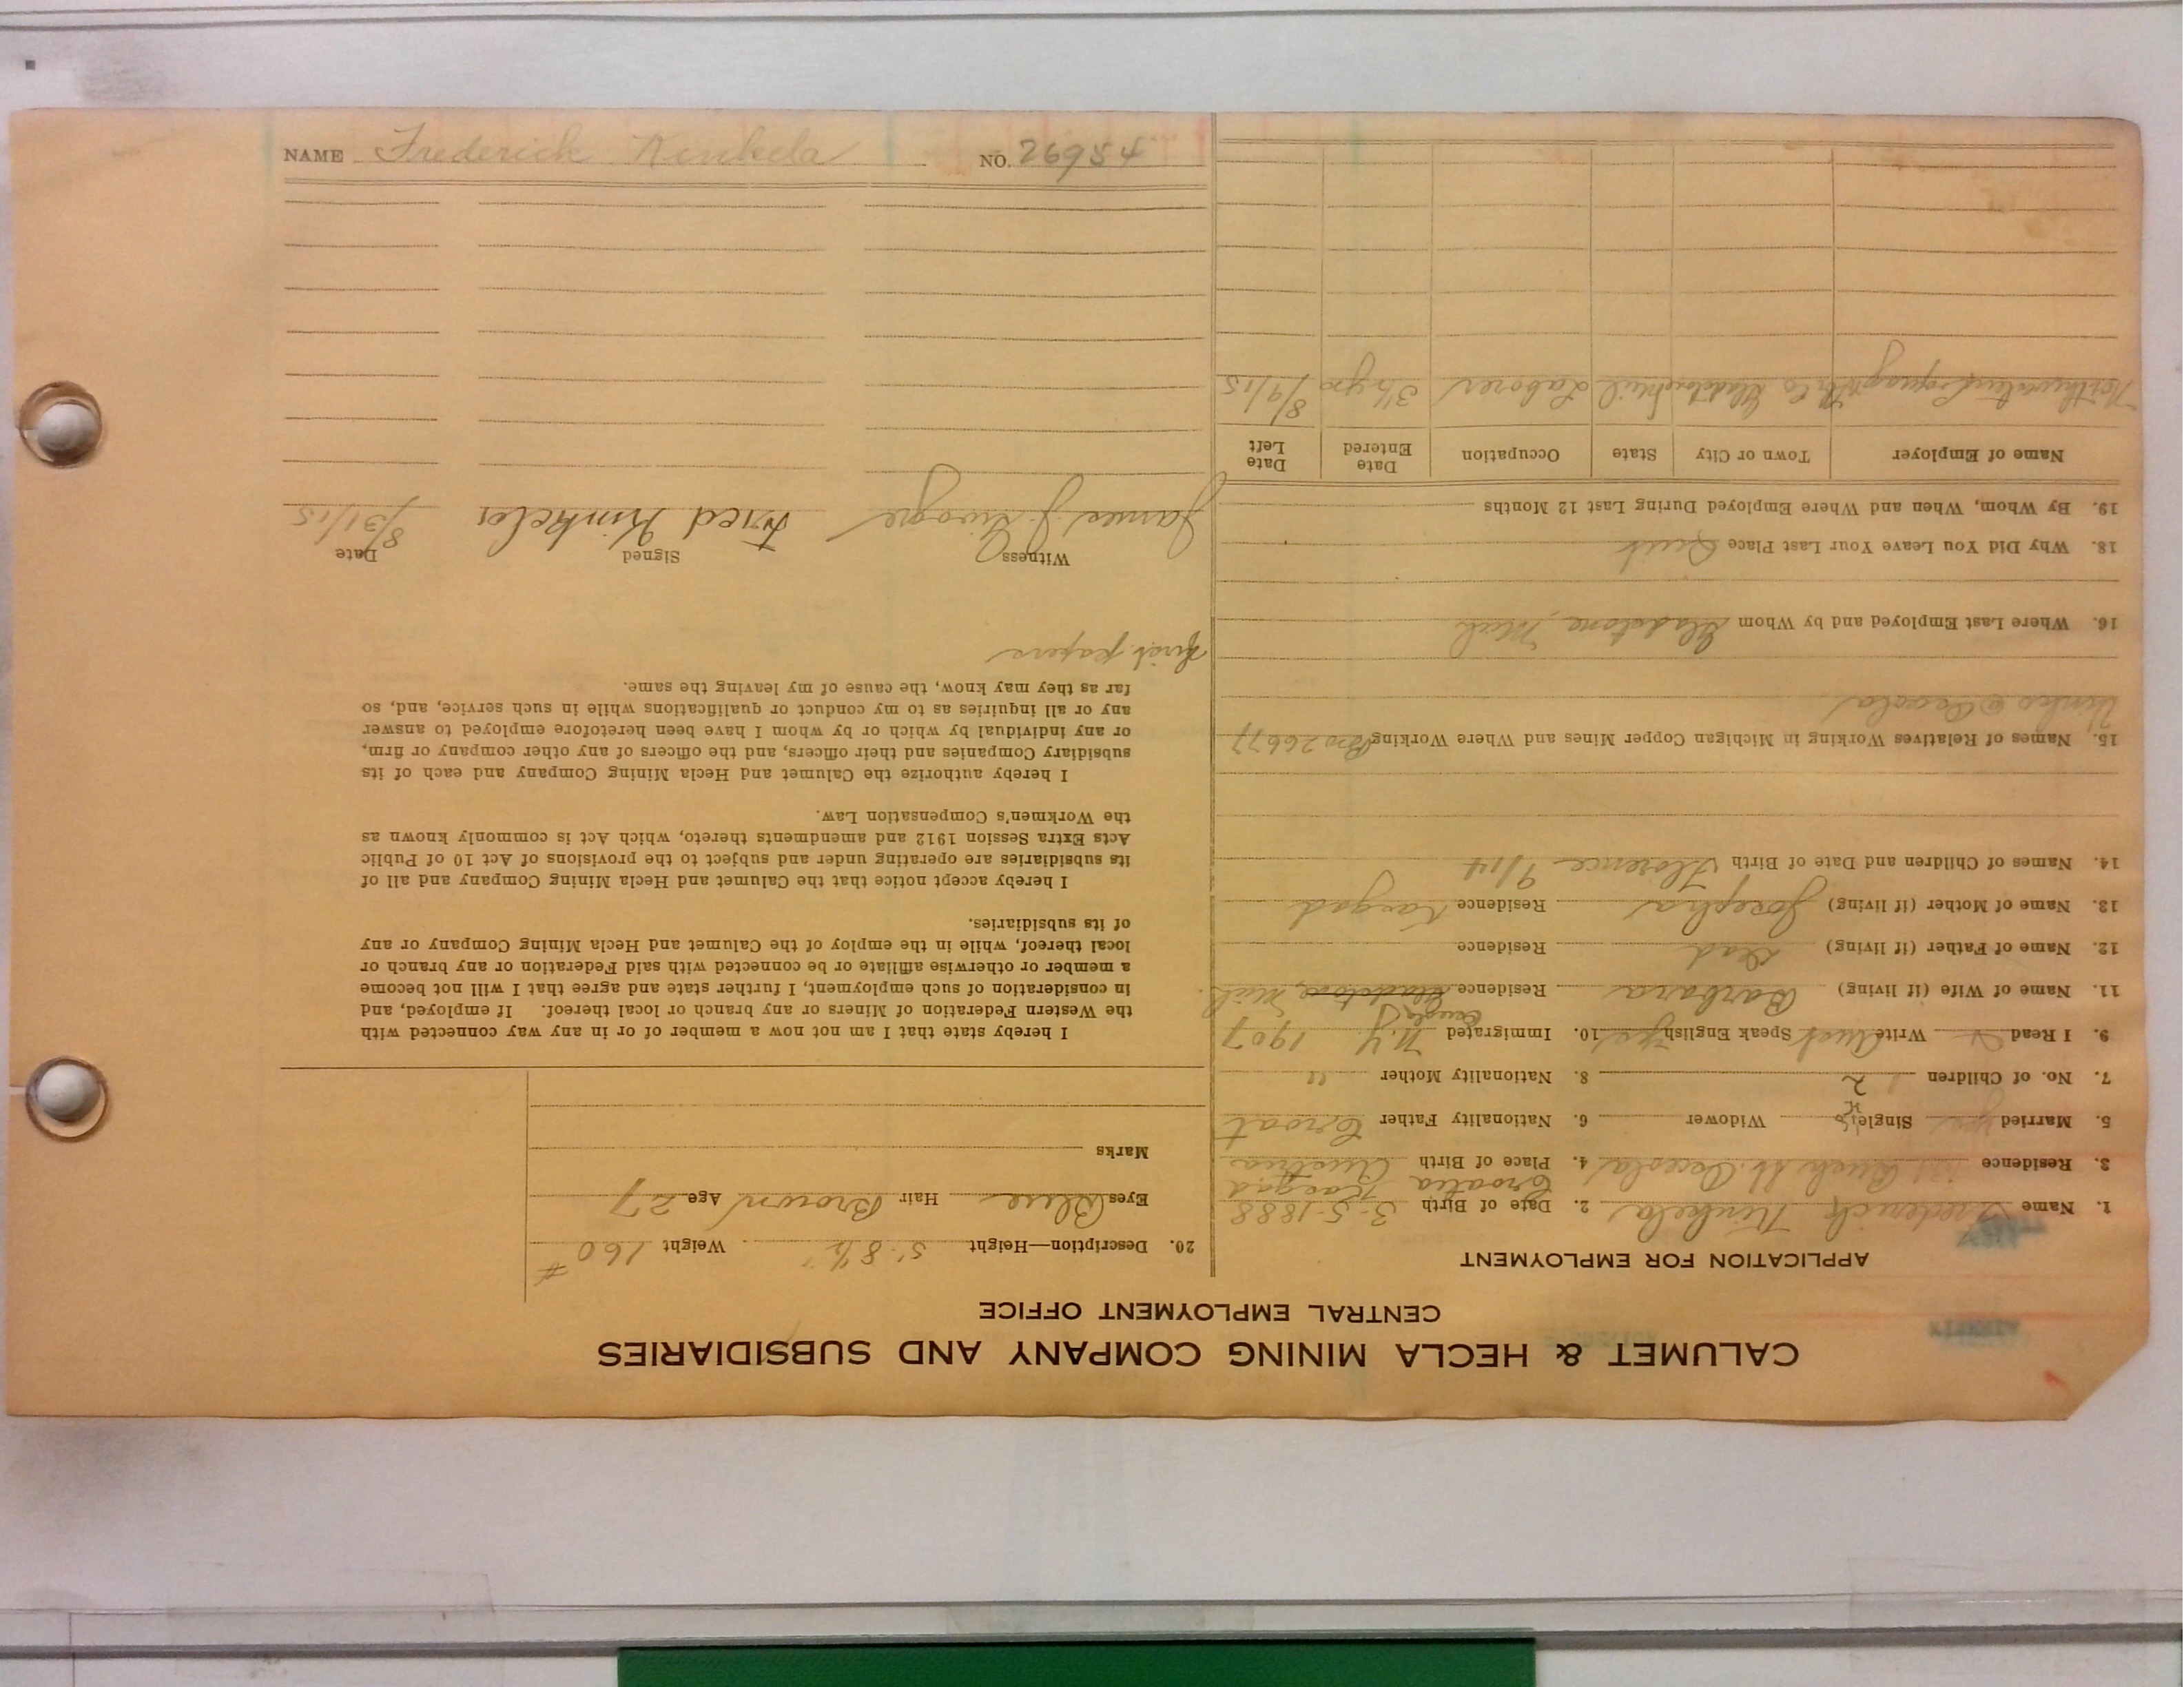 CALUMET & HECLA MINING COMPANY AND SUBSIDIARIES
CENTRAL EMPLOYMENT OFFICE
APPLICATION FOR EMPLOYMENT
1. Name Frederick Kinkela 2. Date of Birth 3-5-1888
Croatia
3. Residence Osceola 4. Place of Birth Austria
5. Married yes Single Widower 6. Nationality Father Croat
7. No. of Children 2 8. Nationality Mother "
9. I Read Write Aust Speak English yes 10. Immigrated N.Y. 1907
11. Name of Wife (if living) Barbara Residence Gladstone, Mich
12. Name of Father (if living) dead Residence
13. Name of Mother (if living) Josepha Residence
14. Names of Children and Date of Birth Florence 9/14
15. Names of Relatives Working in Michigan Copper Mines and Where Working Bro 26677
@ Osceola
16. Where Last Employed and by Whom Gladstone, Mich
18. Why Did You Leave Your Last Place Quit
19. By Whom, When and Where Employed During Last 12 Months
Name of Employer Town or City State Occupation Date Entered Date Left
Northwestern Gladstone Mich Laborer 3½ yrs 8/9/15
20. Description—Height 5' 8½" Weight 160 #
Eyes Blue Hair Brown Age 27
Marks
I hereby state that I am not now a member of or in any way connected with
the Western Federation of Miners or any branch or local thereof. If employed, and
in consideration of such employment, I further state and agree that I will not become
a member or otherwise affiliate or be connected with said Federation or any branch or
local thereof, while in the employ of the Calumet and Hecla Mining Company or any
of its subsidiaries.
I hereby accept notice that the Calumet and Hecla Mining Company and all of
its subsidiaries are operating under and subject to the provisions of Act 10 of Public
Acts Extra Session 1912 and amendments thereto, which Act is commonly known as
the Workmen's Compensation Law.
I hereby authorize the Calumet and Hecla Mining Company and each of its
subsidiary Companies and their officers, and the officers of any other company or firm,
or any individual by which or by whom I have been heretofore employed to answer
any or all inquiries as to my conduct or qualifications while in such service, and, so
far as they may know, the cause of my leaving the same.
first papers
Witness Signed Date
James J. Fred Kinkela 8/31/15
NAME Frederick Kinkela NO. 26954